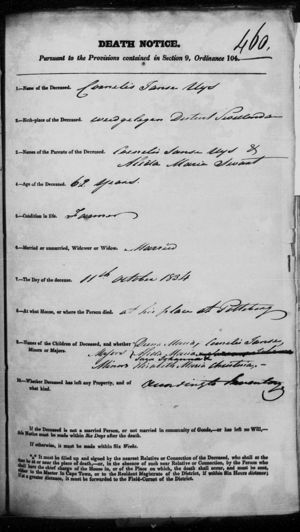 460.
DEATH NOTICE.
Pursuant to the Provisions contained in Section 9, Ordinance 104.
1.—Name of the Deceased. Cornelis Janse Uys
2.—Birth-place of the Deceased. District Swellendam
3.—Names of the Parents of the Deceased. Cornelis Janse Uys &
Alida Maria Swart
4.—Age of the Deceased. 62 Years.
5.—Condition in life. Farmer
6.—Married or unmarried, Widower or Widow. Married
7.—The Day of the decease. 11th October 1834
8.—At what House, or where the Person died. at his place at Potteberg
9.—Names of the Children of Deceased, and whether Maria, Cornelis Janse,
Minors or Majors. Majors Alida Maria
Minors Elizabeth Maria Christina,
10.—Whether Deceased has left any Property, and of according to Inventory
what kind.
If the Deceased is not a married Person, or not married in community of Goods,—or has left no Will,—
this Notice must be made within Six Days after the death.
If otherwise, it must be made within six Weeks.
It must be filled up and signed by the nearest Relation or Connection of the Deceased, who shall at the
time be at or near the place of death,—or, in the absence of such near Relation or Connection, by the Person who
shall have the chief charge of the House in, or of the Place on which, the death shall occur, and must be sent,
either to the Master in Cape Town, or to the Resident Magistrate of the District, if within Six Hours distance;
if at a greater distance, it must be forwarded to the Field-Cornet of the District.